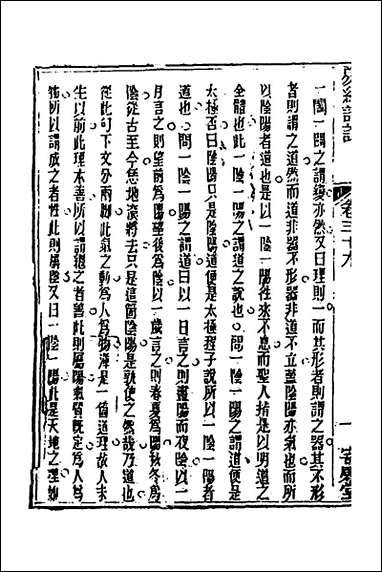 一闔一闢之謂變亦然又曰理則一而其形者則謂之器其不形
者則謂之道然而道非器不形器非道不立蓋陰陽亦氣也而所
以陰陽者道也是以一陰一陽徃來不息而聖人指是以明道之
全體也此一陰一陽之謂道之說也○問一陰一陽之謂道便是
太極否曰陰陽只是陰陽道便是太極程子說所以一陰一陽者
道也○問一陰一陽之謂道曰以一日言之則晝陽而夜陰以一
月言之則望前爲陽望後爲陰以一歲言之則春夏爲陽秋冬爲
陰從古至今恁地滚將去只是這箇陰陽是孰使之然哉乃道也
從此句下文分兩脚此氣之動爲人爲物渾是一箇道理故人未
生以前此理本善所以謂繼之者善此則屬陽氣質既定爲人爲
物所以謂成之者性此則屬陰又曰一陰一陽此是天地之理如
卷三十九